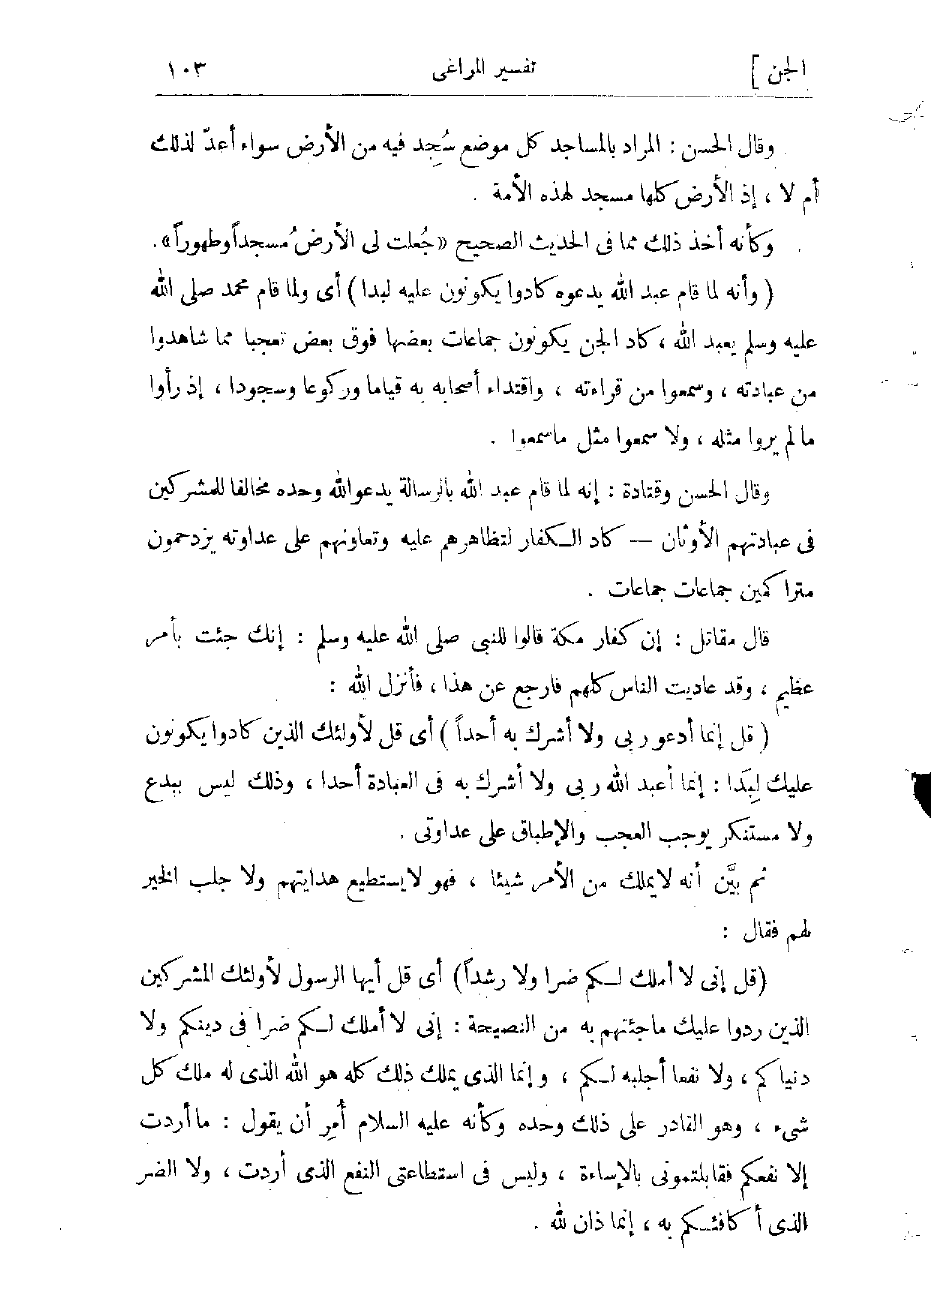 الجن ] تفسير المراغى ١٠٣
وقال الحسن : المراد بالمساجد كل موضع سُجِد فيه من الأرض سواء أعدّ لذلك
أم لا ، إذ الأرض كلها مسجد لهذه الأمة .
وكأنه أخذ ذلك مما فى الحديث الصحيح «جُعلت لى الأرضُ مسجداً وطهوراً».
( وأنه لما قام عبد الله يدعوه كادوا يكونون عليه لبدا ) أى ولما قام محمد صلى الله
عليه وسلم يعبد الله ، كاد الجن يكونون جماعات بعضها فوق بعض تعجبا مما شاهدوا
من عبادته ، وسمعوا من قراءته ، واقتداء أصحابه به قياما وركوعا وسجودا ، إذ رأوا
ما لم يروا مثله ، ولا سمعوا مثل ماسمعوا .
وقال الحسن وقتادة : إنه لما قام عبد الله بالرسالة يدعو الله وحده مخالفا للمشركين
فى عبادتهم الأوثان — كاد الكفار لتظاهرهم عليه وتعاونهم على عداوته يزدحمون
متراكمين جماعات جماعات .
قال مقاتل : إن كفار مكة قالوا للنبى صلى الله عليه وسلم : إنك جئت بأمر
عظيم ، وقد عاديت الناس كلهم فارجع عن هذا ، فأنزل الله :
( قل إنما أدعو ربى ولا أشرك به أحداً ) أى قل لأولئك الذين كادوا يكونون
عليك لِبَدا : إنما أعبد الله ربى ولا أشرك به فى العبادة أحدا ، وذلك ليس ببدع
ولا مستنكر يوجب العجب والإطباق على عداوتى .
ثم بيَّن أنه لايملك من الأمر شيئا ، فهو لايستطيع هدايتهم ولا جلب الخير
لهم فقال :
(قل إنى لا أملك لكم ضرا ولا رشداً) أى قل أيها الرسول لأولئك المشركين
الذين ردوا عليك ماجئتهم به من النصيحة : إنى لا أملك لكم ضرا فى دينكم ولا
دنياكم ، ولا نفعا أجلبه لكم ، وإنما الذى يملك ذلك كله هو الله الذى له ملك كل
شىء ، وهو القادر على ذلك وحده وكأنه عليه السلام أُمِر أن يقول : ما أردت
إلا نفعكم فقابلتمونى بالإساءة ، وليس فى استطاعتى النفع الذى أردت ، ولا الضر
الذى أكافئكم به ، إنما ذان لله .